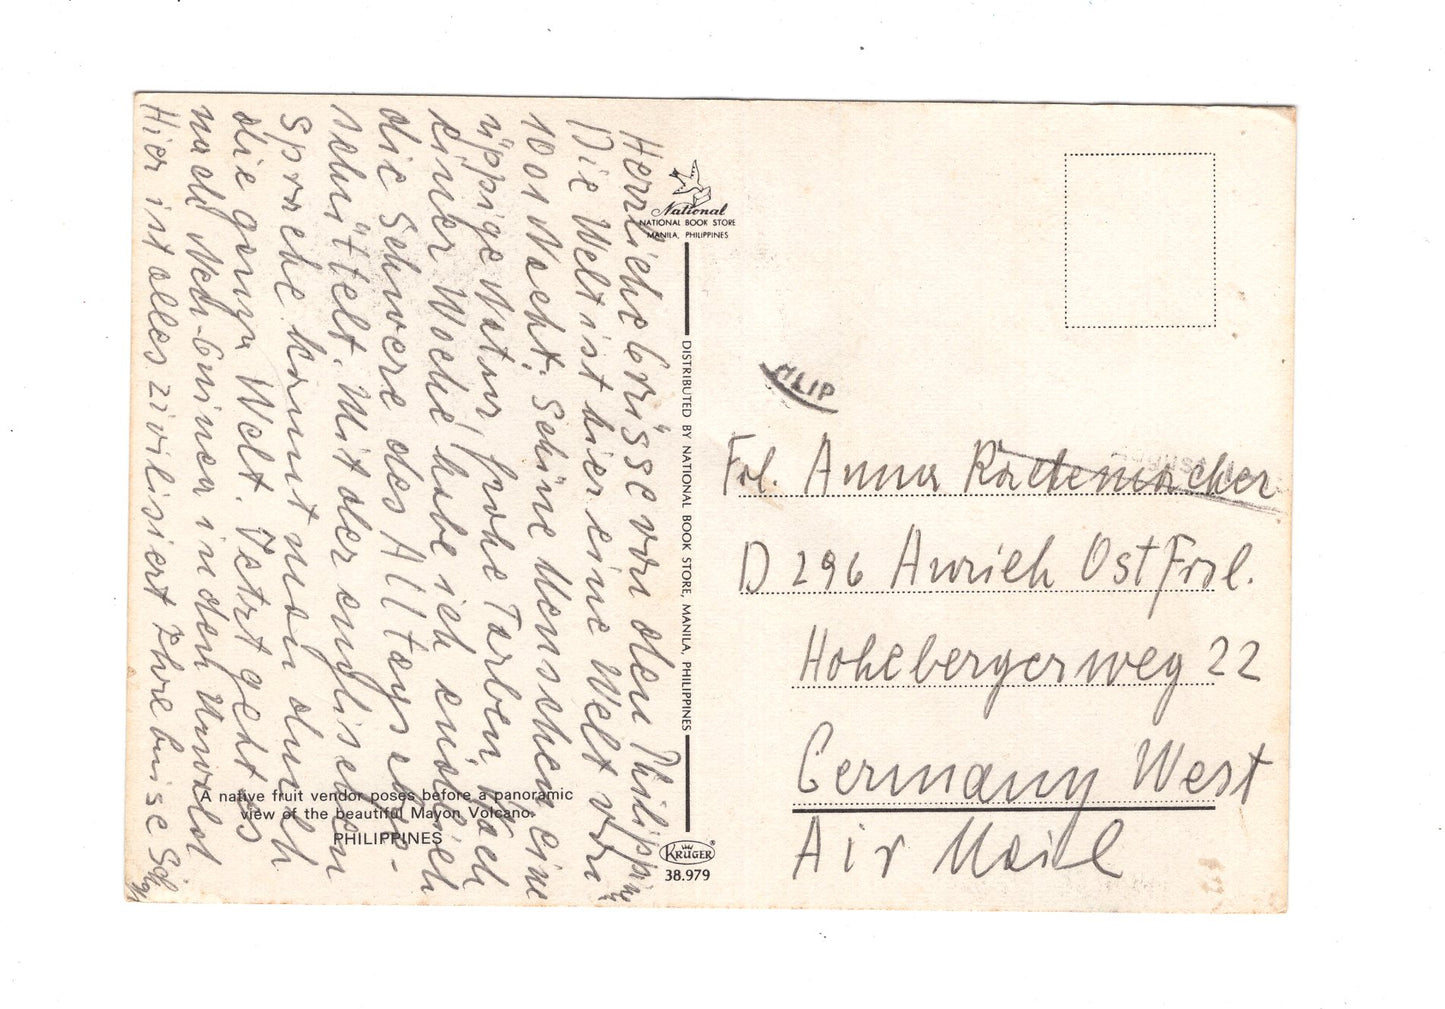 Herzliche Grüsse von den Philippinen
Die Welt ist hier eine Welt von
1001 Nacht. Schöne Menschen eine
üppige Natur, frohe Farben. Nach
einer Woche habe ich endlich
die Schwere des Alltags abge-
schüttelt. Mit der englischen
Sprache kommt man durch
die ganze Welt. Jetzt geht es
nach Neu-Guinea in den Urwald
Hier ist alles zivilisiert Ihre
National
NATIONAL BOOK STORE
MANILA, PHILIPPINES
DISTRIBUTED BY NATIONAL BOOK STORE, MANILA, PHILIPPINES
A native fruit vendor poses before a panoramic
view of the beautiful Mayon Volcano.
PHILIPPINES
KRÜGER
38.979
Frl. Anna Rademacker
D 296 Aurich Ostfrsl.
Hohebergerweg 22
Germany West
Air Mail